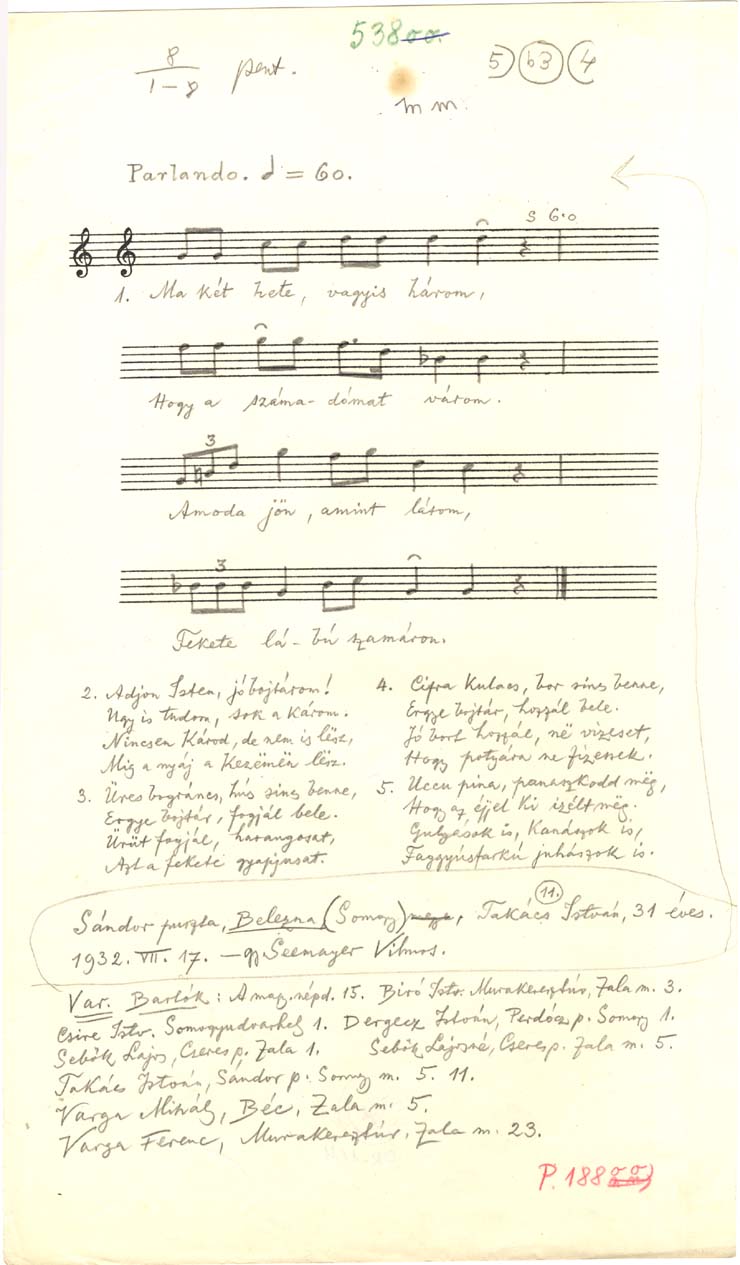 538
8/1-8 pent.
5) (b3) (4
m m.
Parlando. = 60.
S 6·0
3
3
1. Ma két hete, vagyis három,
Hogy a száma-dómat várom.
Amoda jön, amint látom,
Fekete lá-bú szamáron.
2. Adjon Isten, jó bojtárom!
Ugy is tudom, sok a károm.
Nincsen károd, de nem is lësz,
Mig a nyáj a kezëmën lësz.
3. Üres bográncs, hús sincs benne,
Ergye bojtár, fogjál bele.
Ürüt fogjál, harangosat,
Azt a fekete gyapjusat.
4. Cifra kulacs, bor sincs benne,
Ergye bojtár, hozzál bele.
Jó bort hozzál, në vizeset,
Hogy potyára ne fizessek.
5. Uccu pina, panaszkodd mëg,
Hogy az éjjel ki izélt mëg.
Gulyások is, kanászok is,
Faggyúsfarkú juhászok is.
Sándor puszta, Belezna (Somogy), Takács István, 31 éves. 11.
1932. VII. 17. – gy. Seemayer Vilmos.
Var. Bartók: A mag. népd. 15. Biró Istv. Murakeresztúr, Zala m. 3.
Csire Istv. Somogyudvarhely 1. Dergecz István, Perdócz p. Somogy 1.
Sebők Lajos, Cseres p. Zala 1. Sebők Lajosné, Cseres p. Zala m. 5.
Takács István, Sándor p. Somogy m. 5. 11.
Varga Mihály, Béc, Zala m. 5.
Varga Ferenc, Murakeresztúr, Zala m. 23.
P. 188